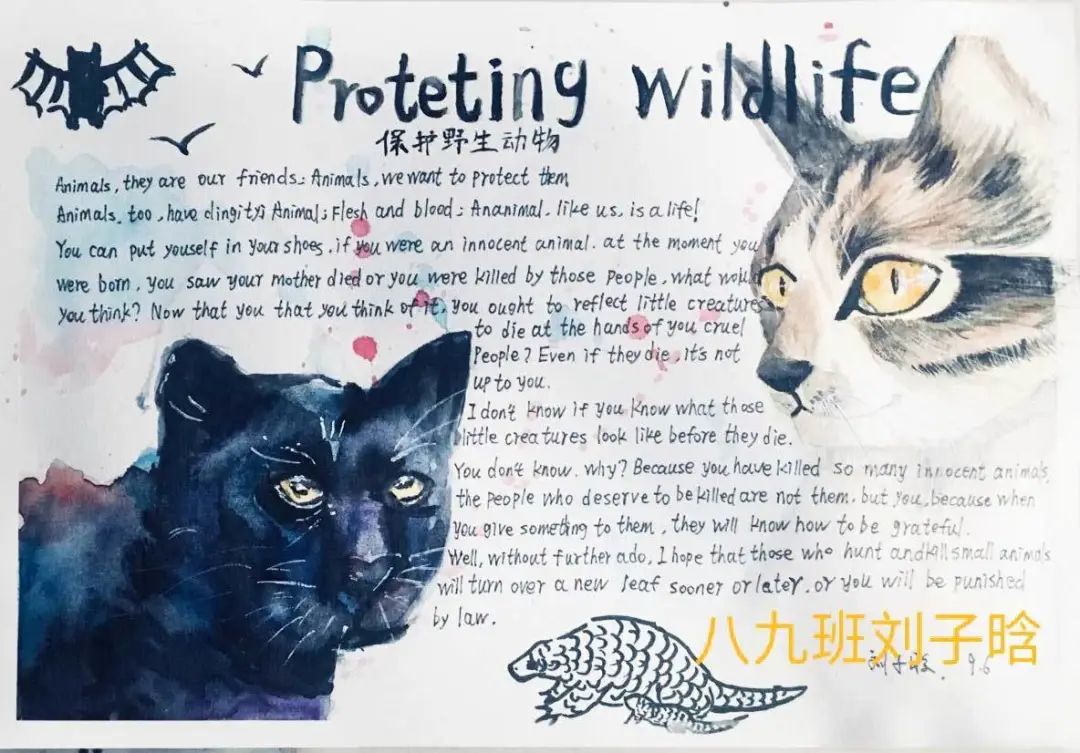 Proteting wildlife
保护野生动物
Animals, they are our friends: Animals, we want to protect them
Animals, too, have dingity; Animal; Flesh and blood; Ananimal, like us, is a life!
You can put youself in your shoes, if you were an innocent animal. at the moment you
were born, you saw your mother died or you were killed by those people, what would
you think? Now that you that you think of it, you ought to reflect little creatures
to die at the hands of you cruel
people? Even if they die, it's not
up to you.
I don't know if you know what those
little creatures look like before they die.
You don't know. why? Because you have killed so many innocent animals,
the people who deserve to be killed are not them. but you, because when
you give something to them, they will know how to be grateful.
Well, without further ado, I hope that those who hunt and kill small animals
will turn over a new leaf sooner or later, or you will be punished
by law.
八九班刘子晗
刘子晗. 9.6